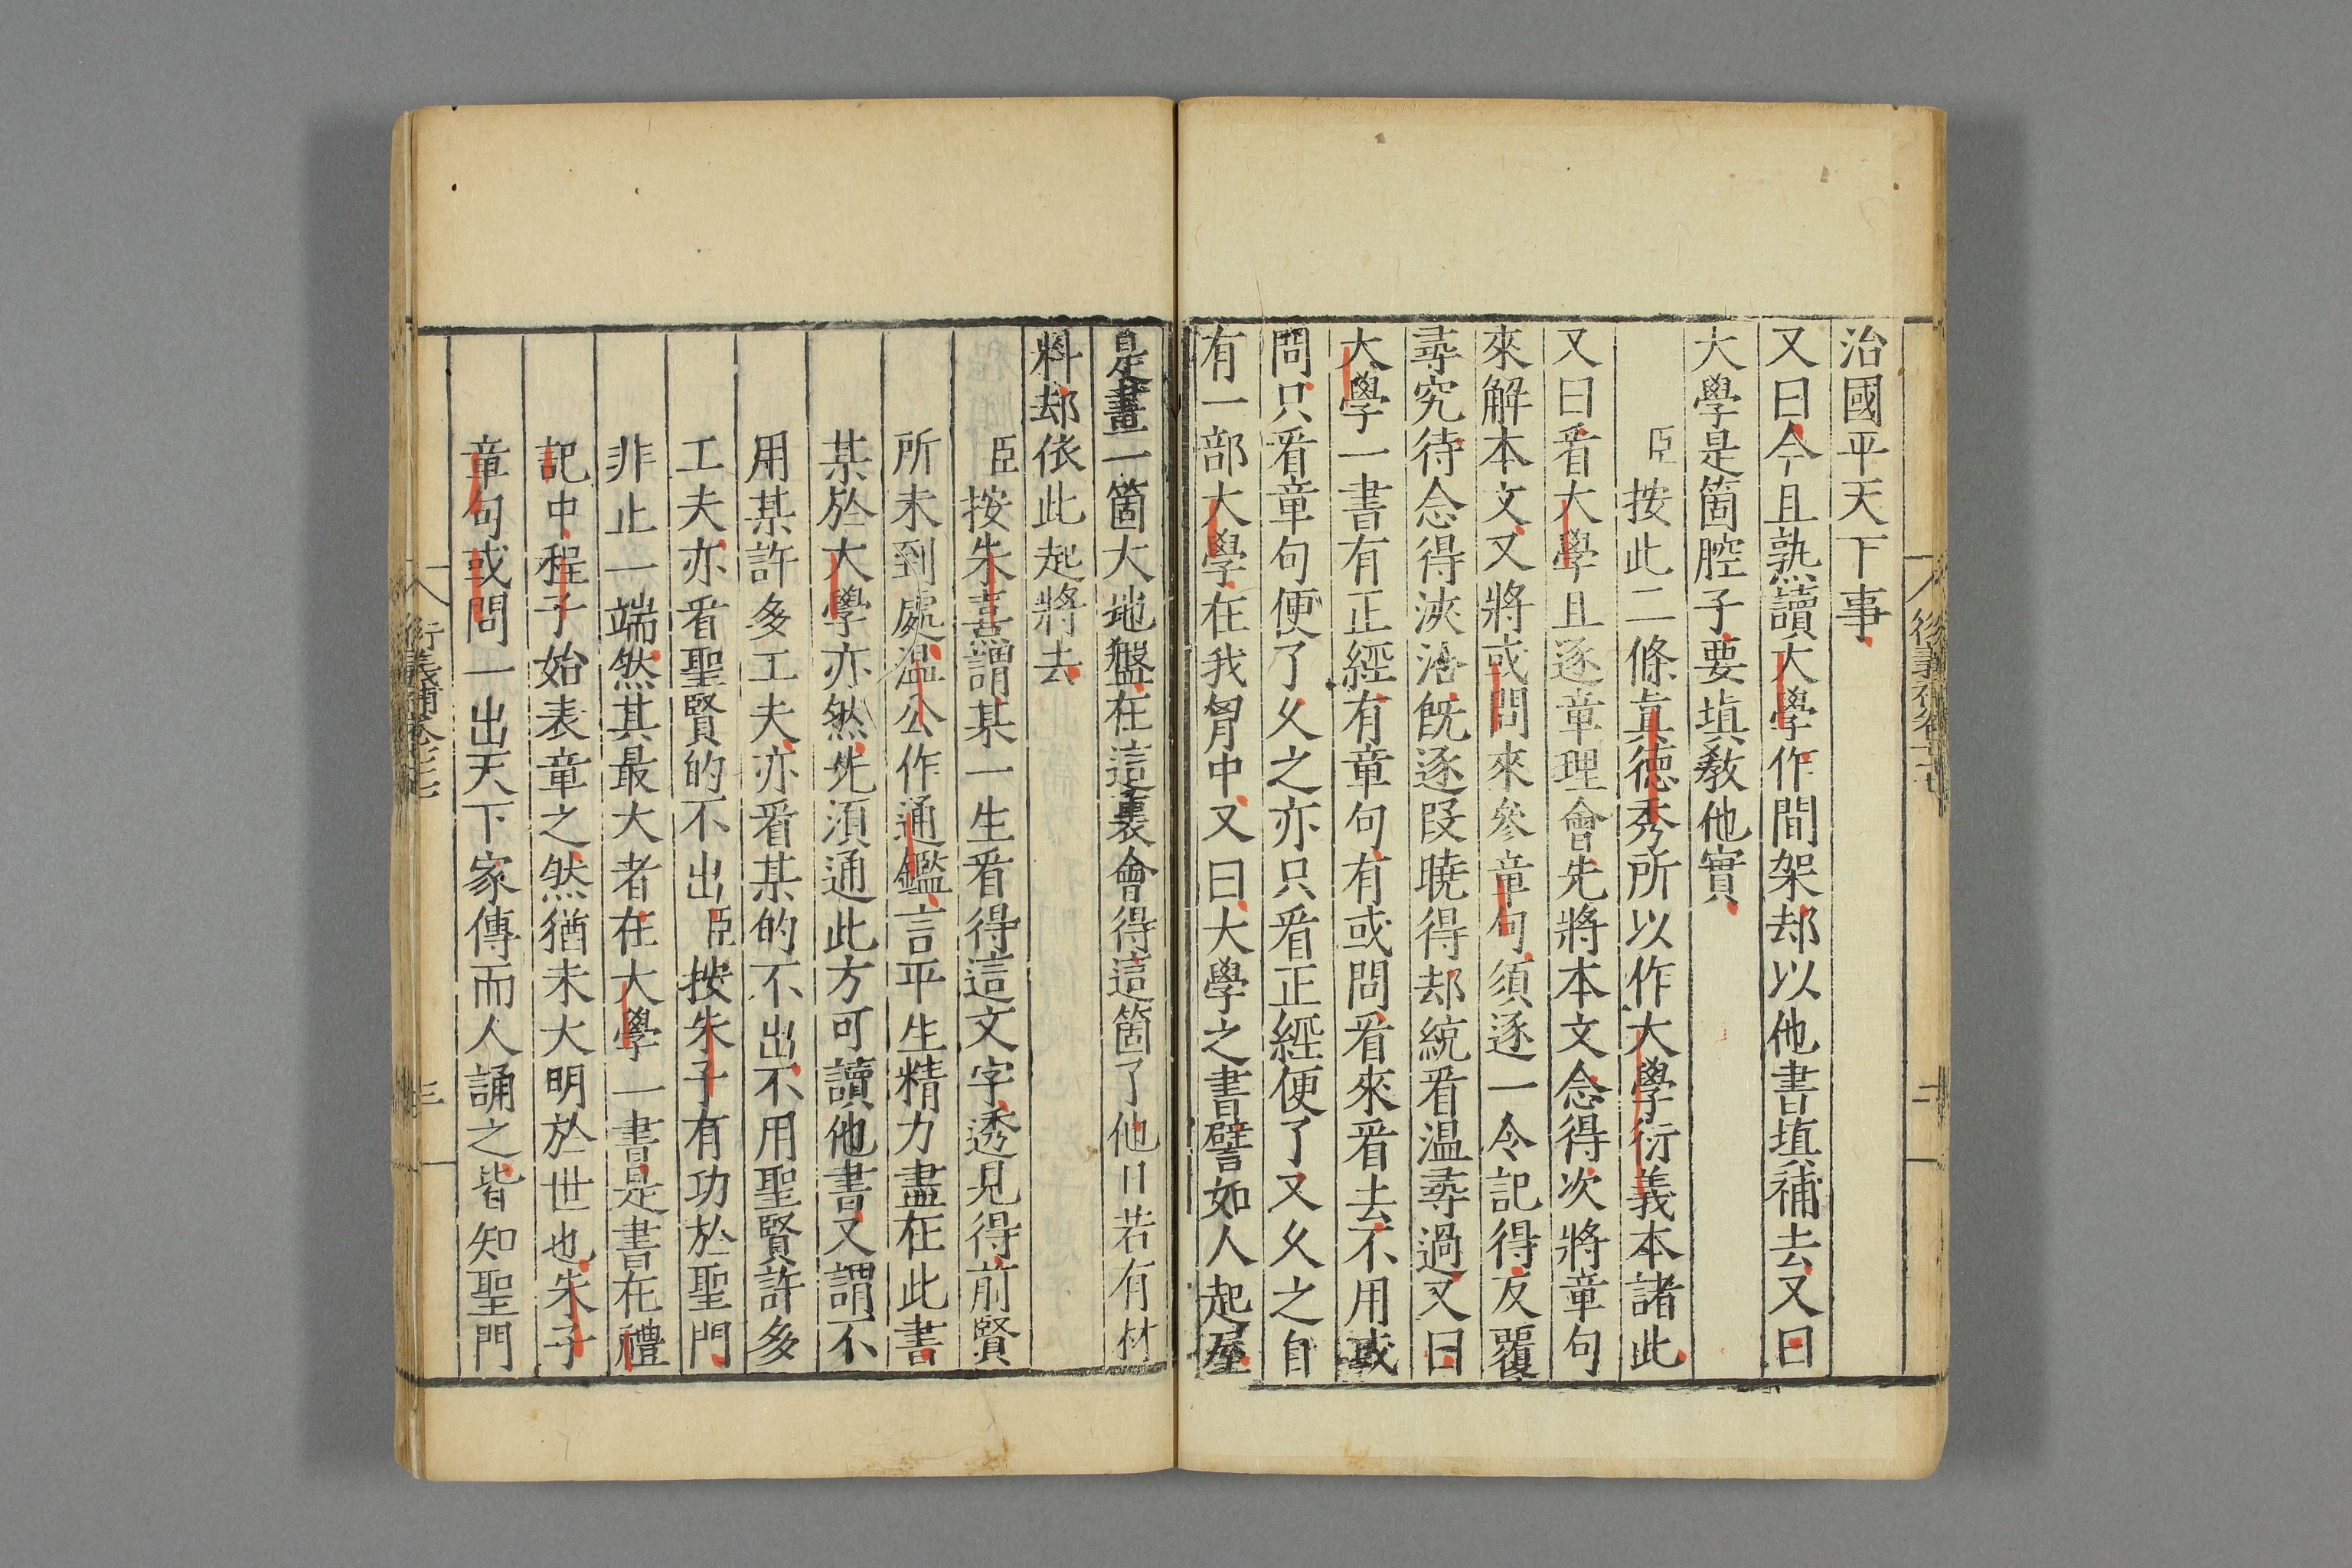 治國平天下事
又曰今且熟讀大學作間架却以他書填補去又曰
大學是箇腔子要填教他實
臣按此二條真德秀所以作大學衍義本諸此
又曰看大學且逐章理會先將本文念得次將章句
來解本文又將或問來參章句須逐一令記得反覆
尋究待念得浹洽旣逐段曉得却統看温尋過又曰
大學一書有正經有章句有或問看來看去不用或
問只看章句便了乆之亦只看正經便了又乆之自
有一部大學在我胷中又曰大學之書譬如人起屋
是畫一箇大地盤在這裏會得這箇了他日若有材
料却依此起將去
臣按朱熹謂某一生看得這文字透見得前賢
所未到處温公作通鑑言平生精力盡在此書
某於大學亦然先須通此方可讀他書又謂不
用某許多工夫亦看某的不出不用聖賢許多
工夫亦看聖賢的不出臣按朱子有功於聖門
非止一端然其最大者在大學一書是書在禮
記中程子始表章之然猶未大明於世也朱子
章句或問一出天下家傳而人誦之皆知聖門
衍義補卷
三